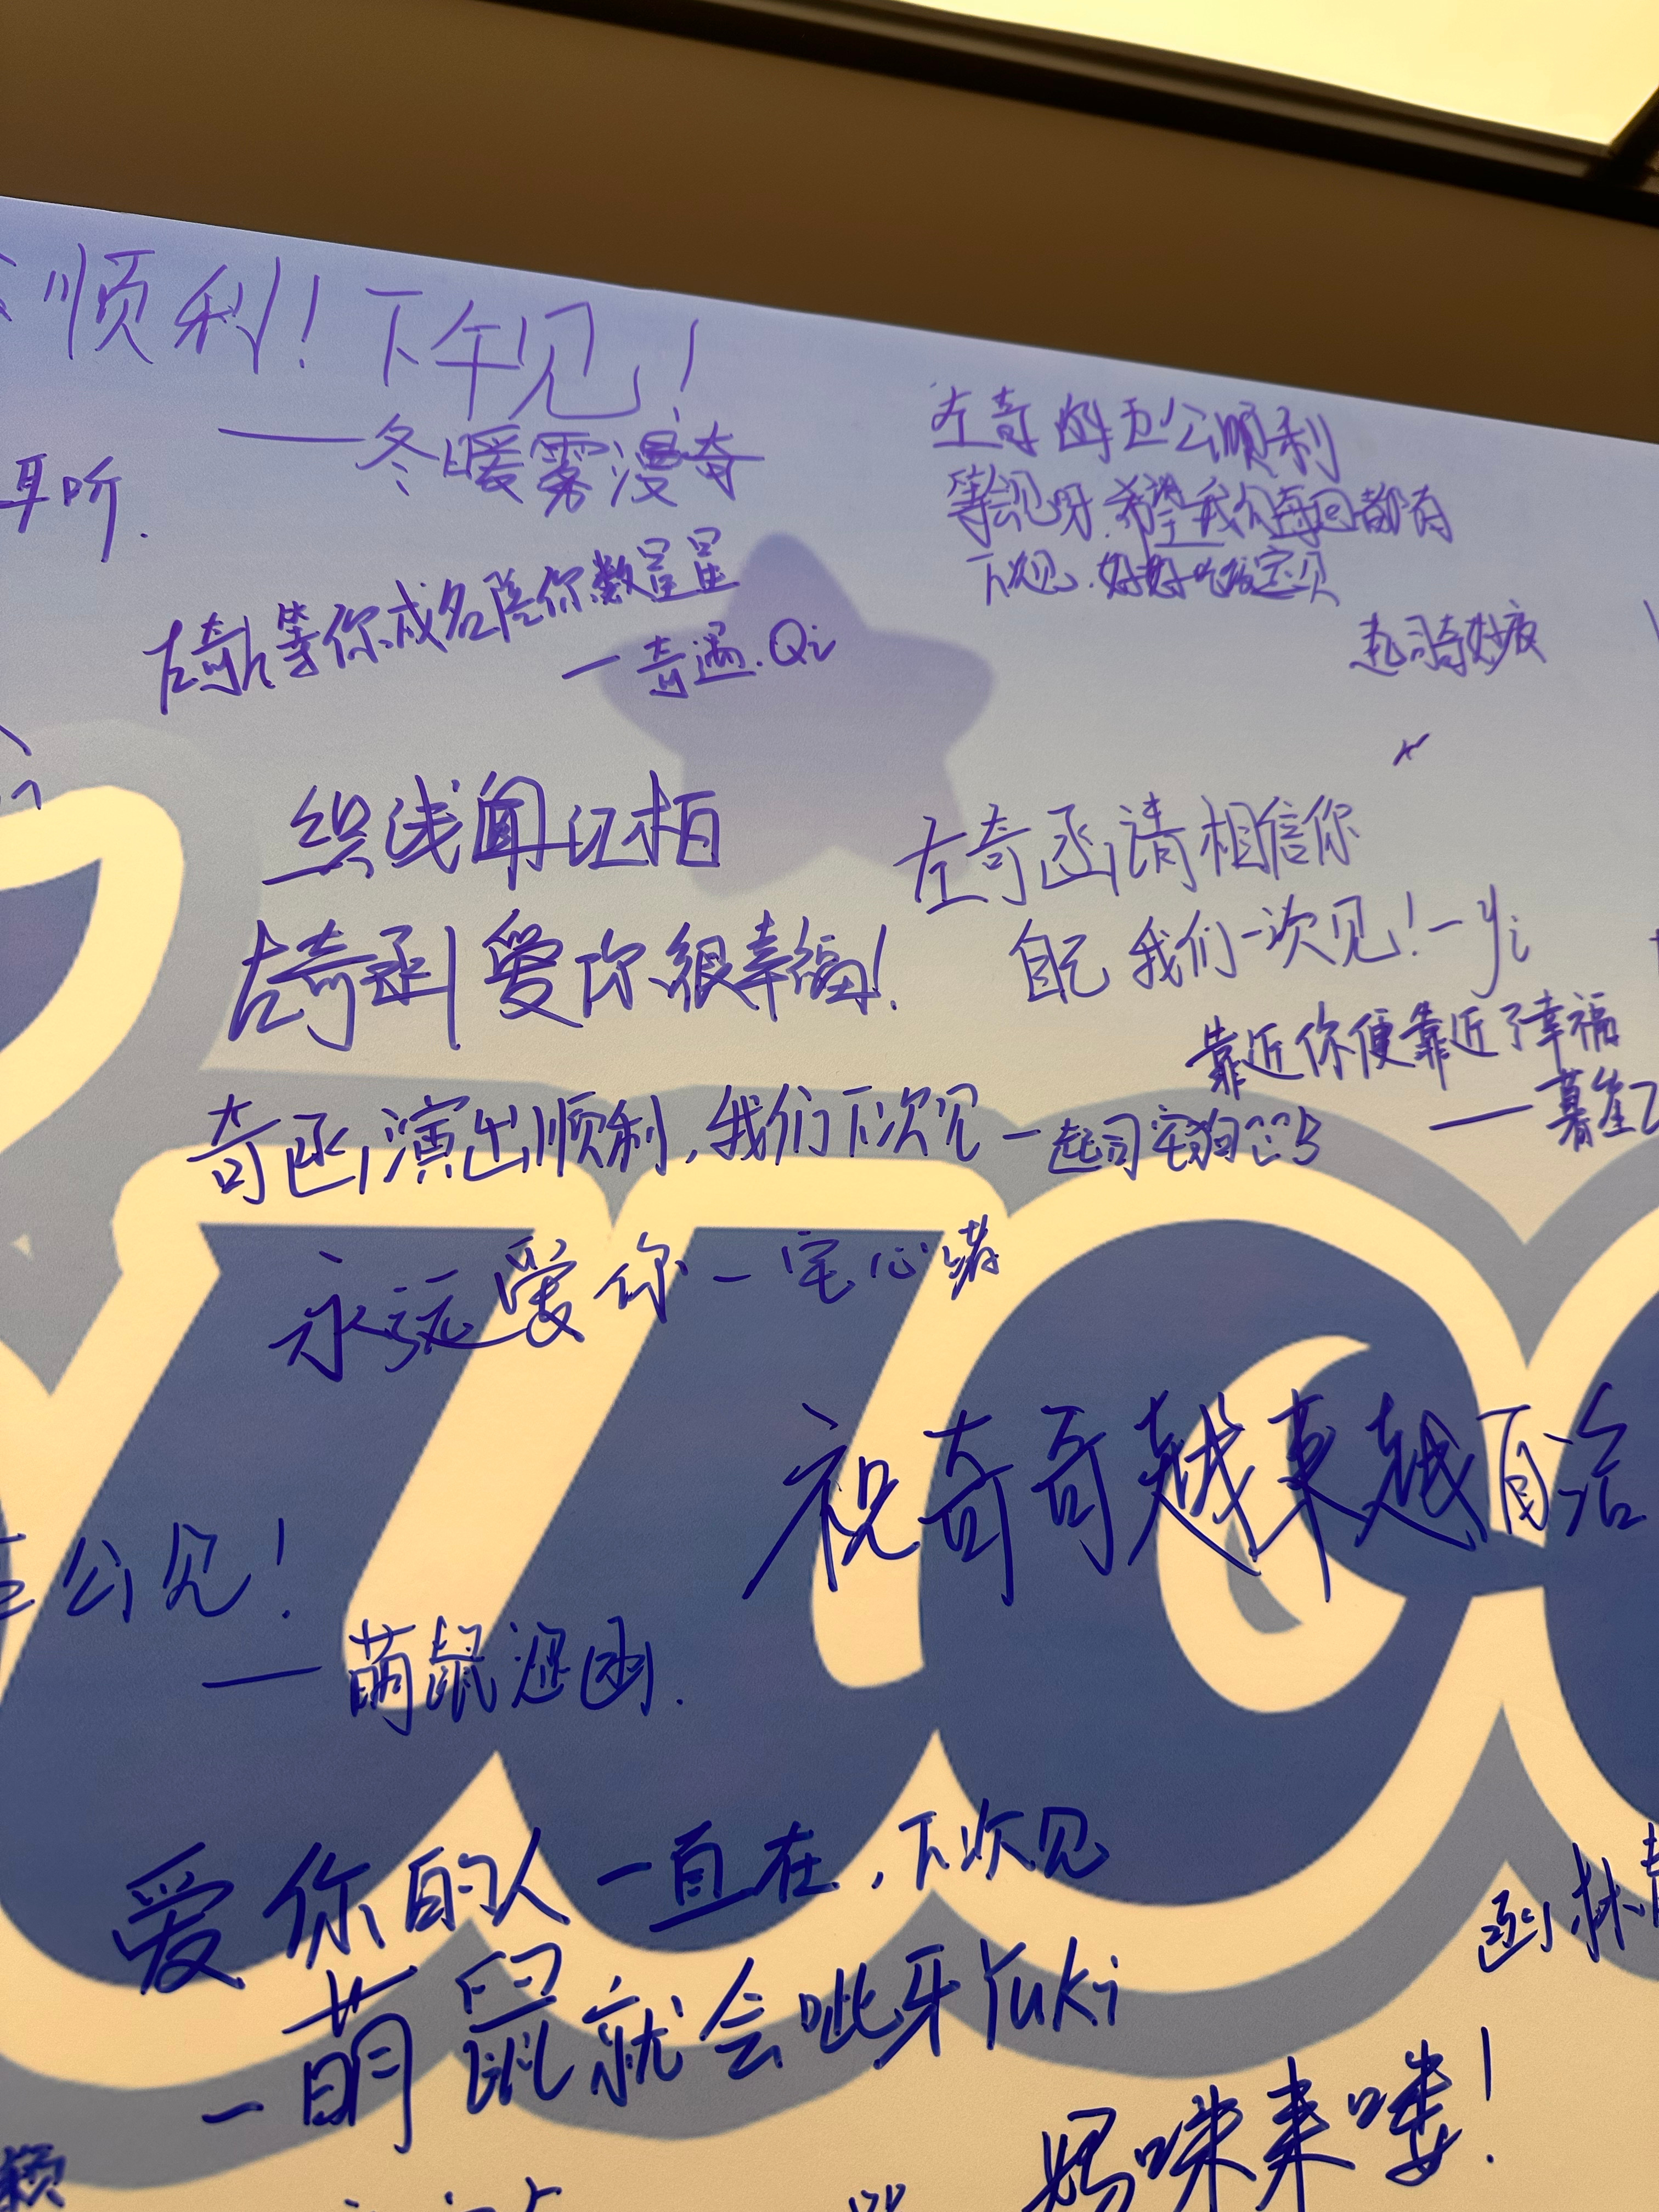 顺利！下午见！
——冬暖雾漫奇
耳听.
左奇函等你成名陪你数星星
—奇遇.Qi
左奇函五公顺利
等会见呀.希望我们每回都有
下次见.好好吃饭宝贝
起司奇妙夜
织浅闻证柏
左奇函爱你很幸福！
左奇函请相信你
自己 我们一次见！—yi
靠近你便靠近了幸福
——暮笙
奇函演出顺利，我们下次见—起司宅狗
永远爱你—宅心
祝奇奇越来越自洽
公见！
——萌鼠 函.
爱你的人一直在，下次见
—萌鼠就会呲牙Yuki
函 林
妈咪来喽！